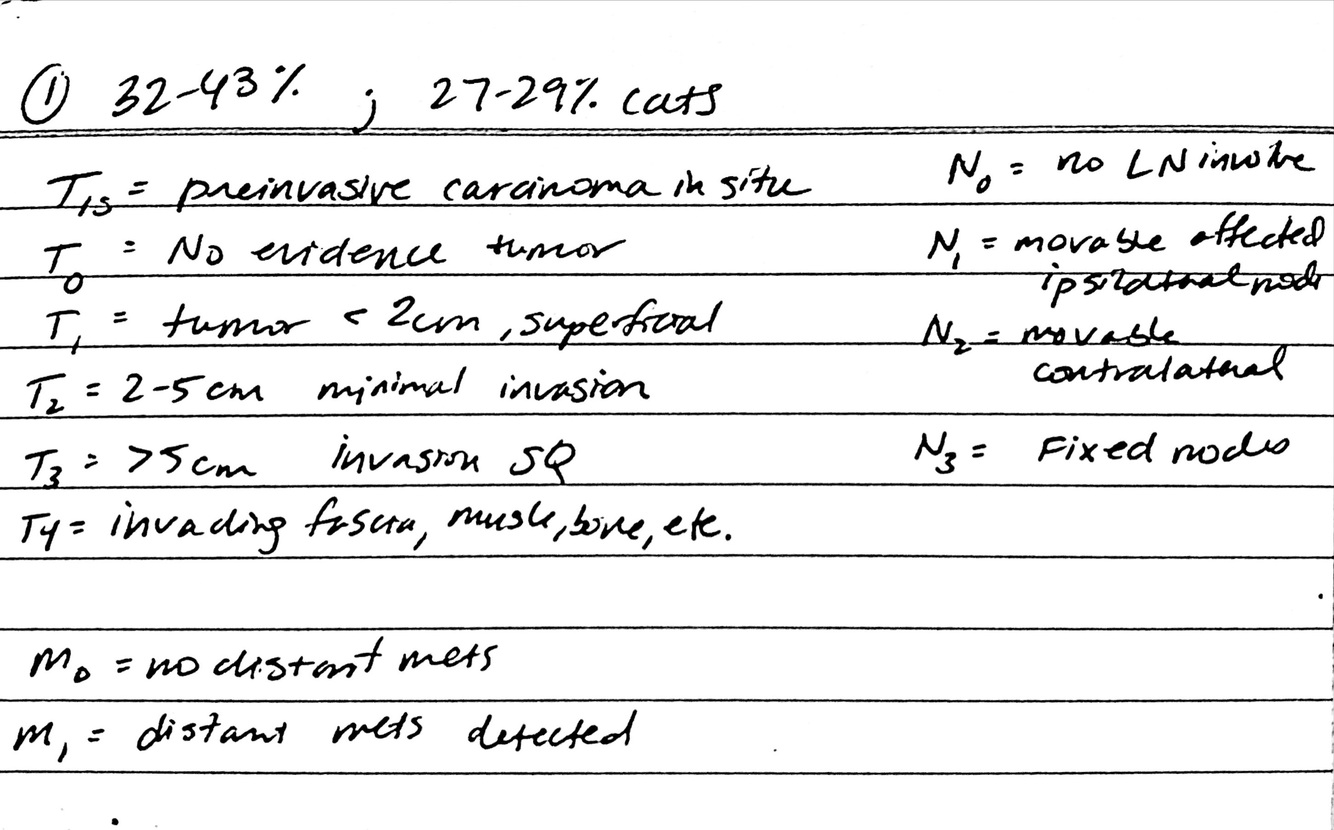 ① 32-43% ; 27-29% cats
Tis = preinvasive carcinoma in situ
T0 = No evidence tumor
T1 = tumor < 2cm, superficial
T2 = 2-5 cm minimal invasion
T3 = >5cm invasion SQ
T4 = invading fascia, muscle, bone, etc.
N0 = no LN involve
N1 = movable affected
ipsilateral node
N2 = movable
contralateral
N3 = Fixed nodes
M0 = no distant mets
M1 = distant mets detected